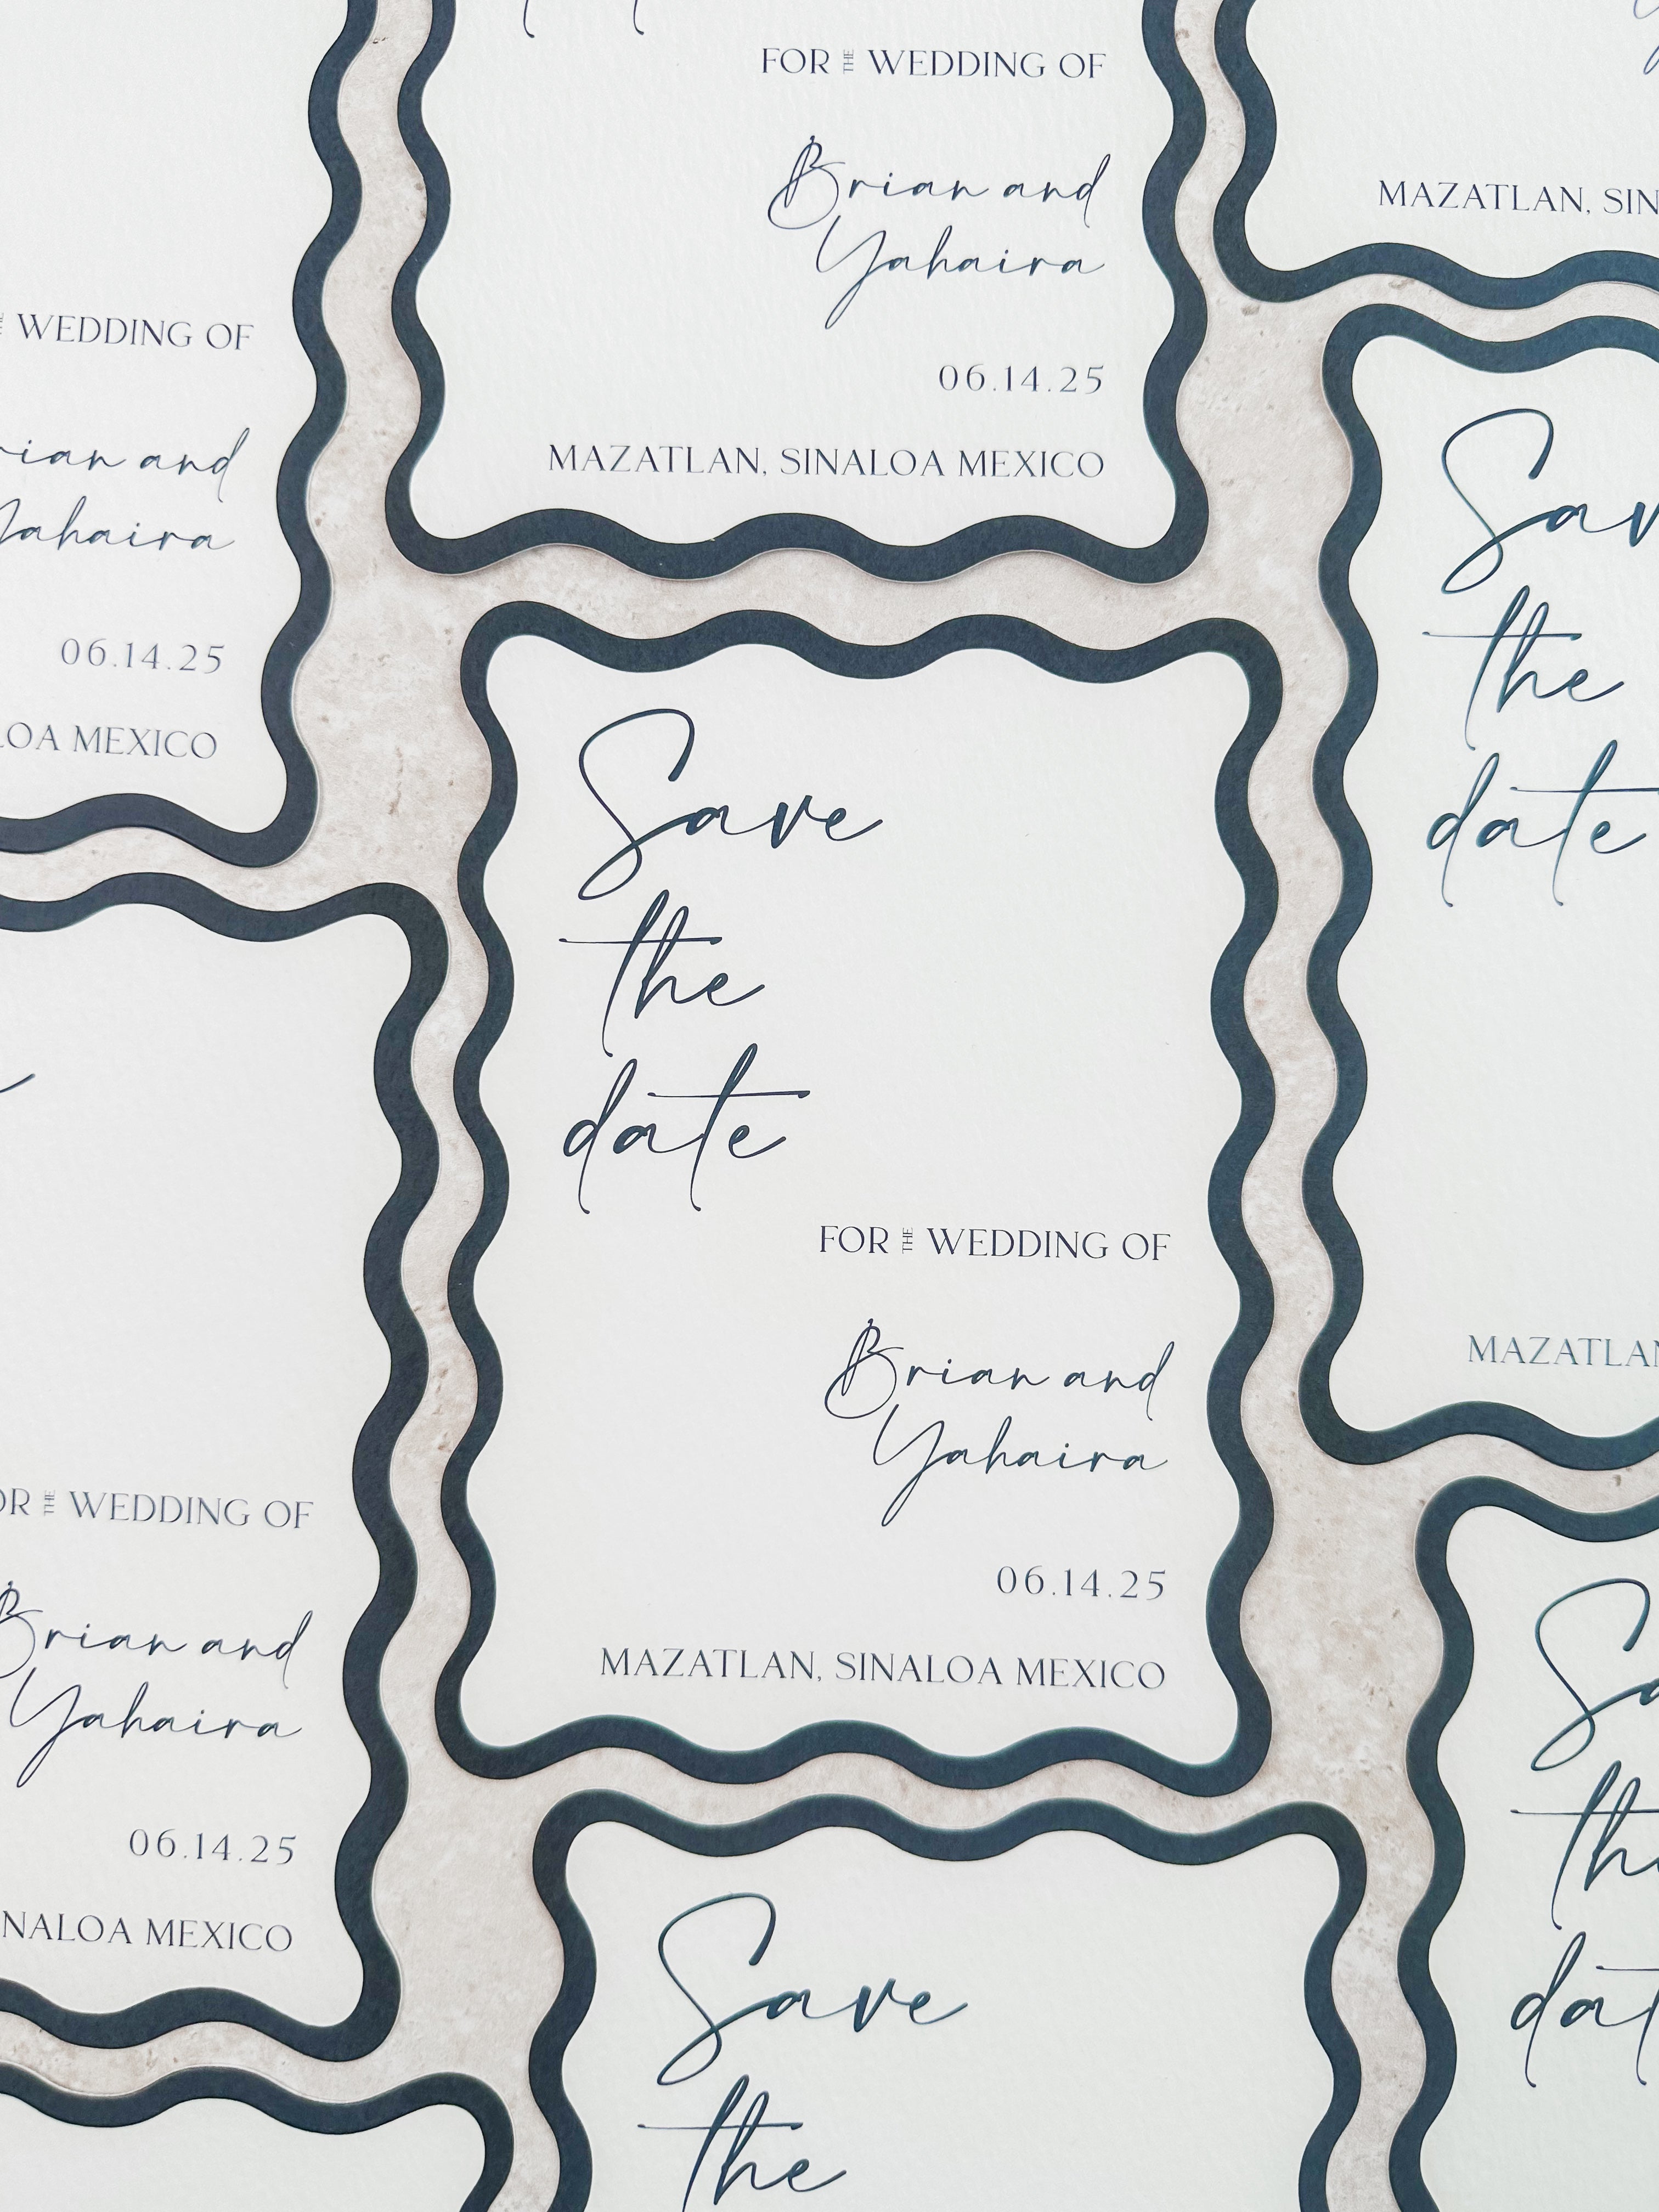 FOR THE WEDDING OF
Brian and
Yahaira
06.14.25
MAZATLAN, SINALOA MEXICO
MAZATLAN,
WEDDING OF
and
Yahaira
06.14.25
MEXICO
Save
the
date
FOR THE WEDDING OF
Brian and
Yahaira
06.14.25
MAZATLAN, SINALOA MEXICO
the
date
THE WEDDING OF
Brian and
Yahaira
06.14.25
MEXICO
Save
the